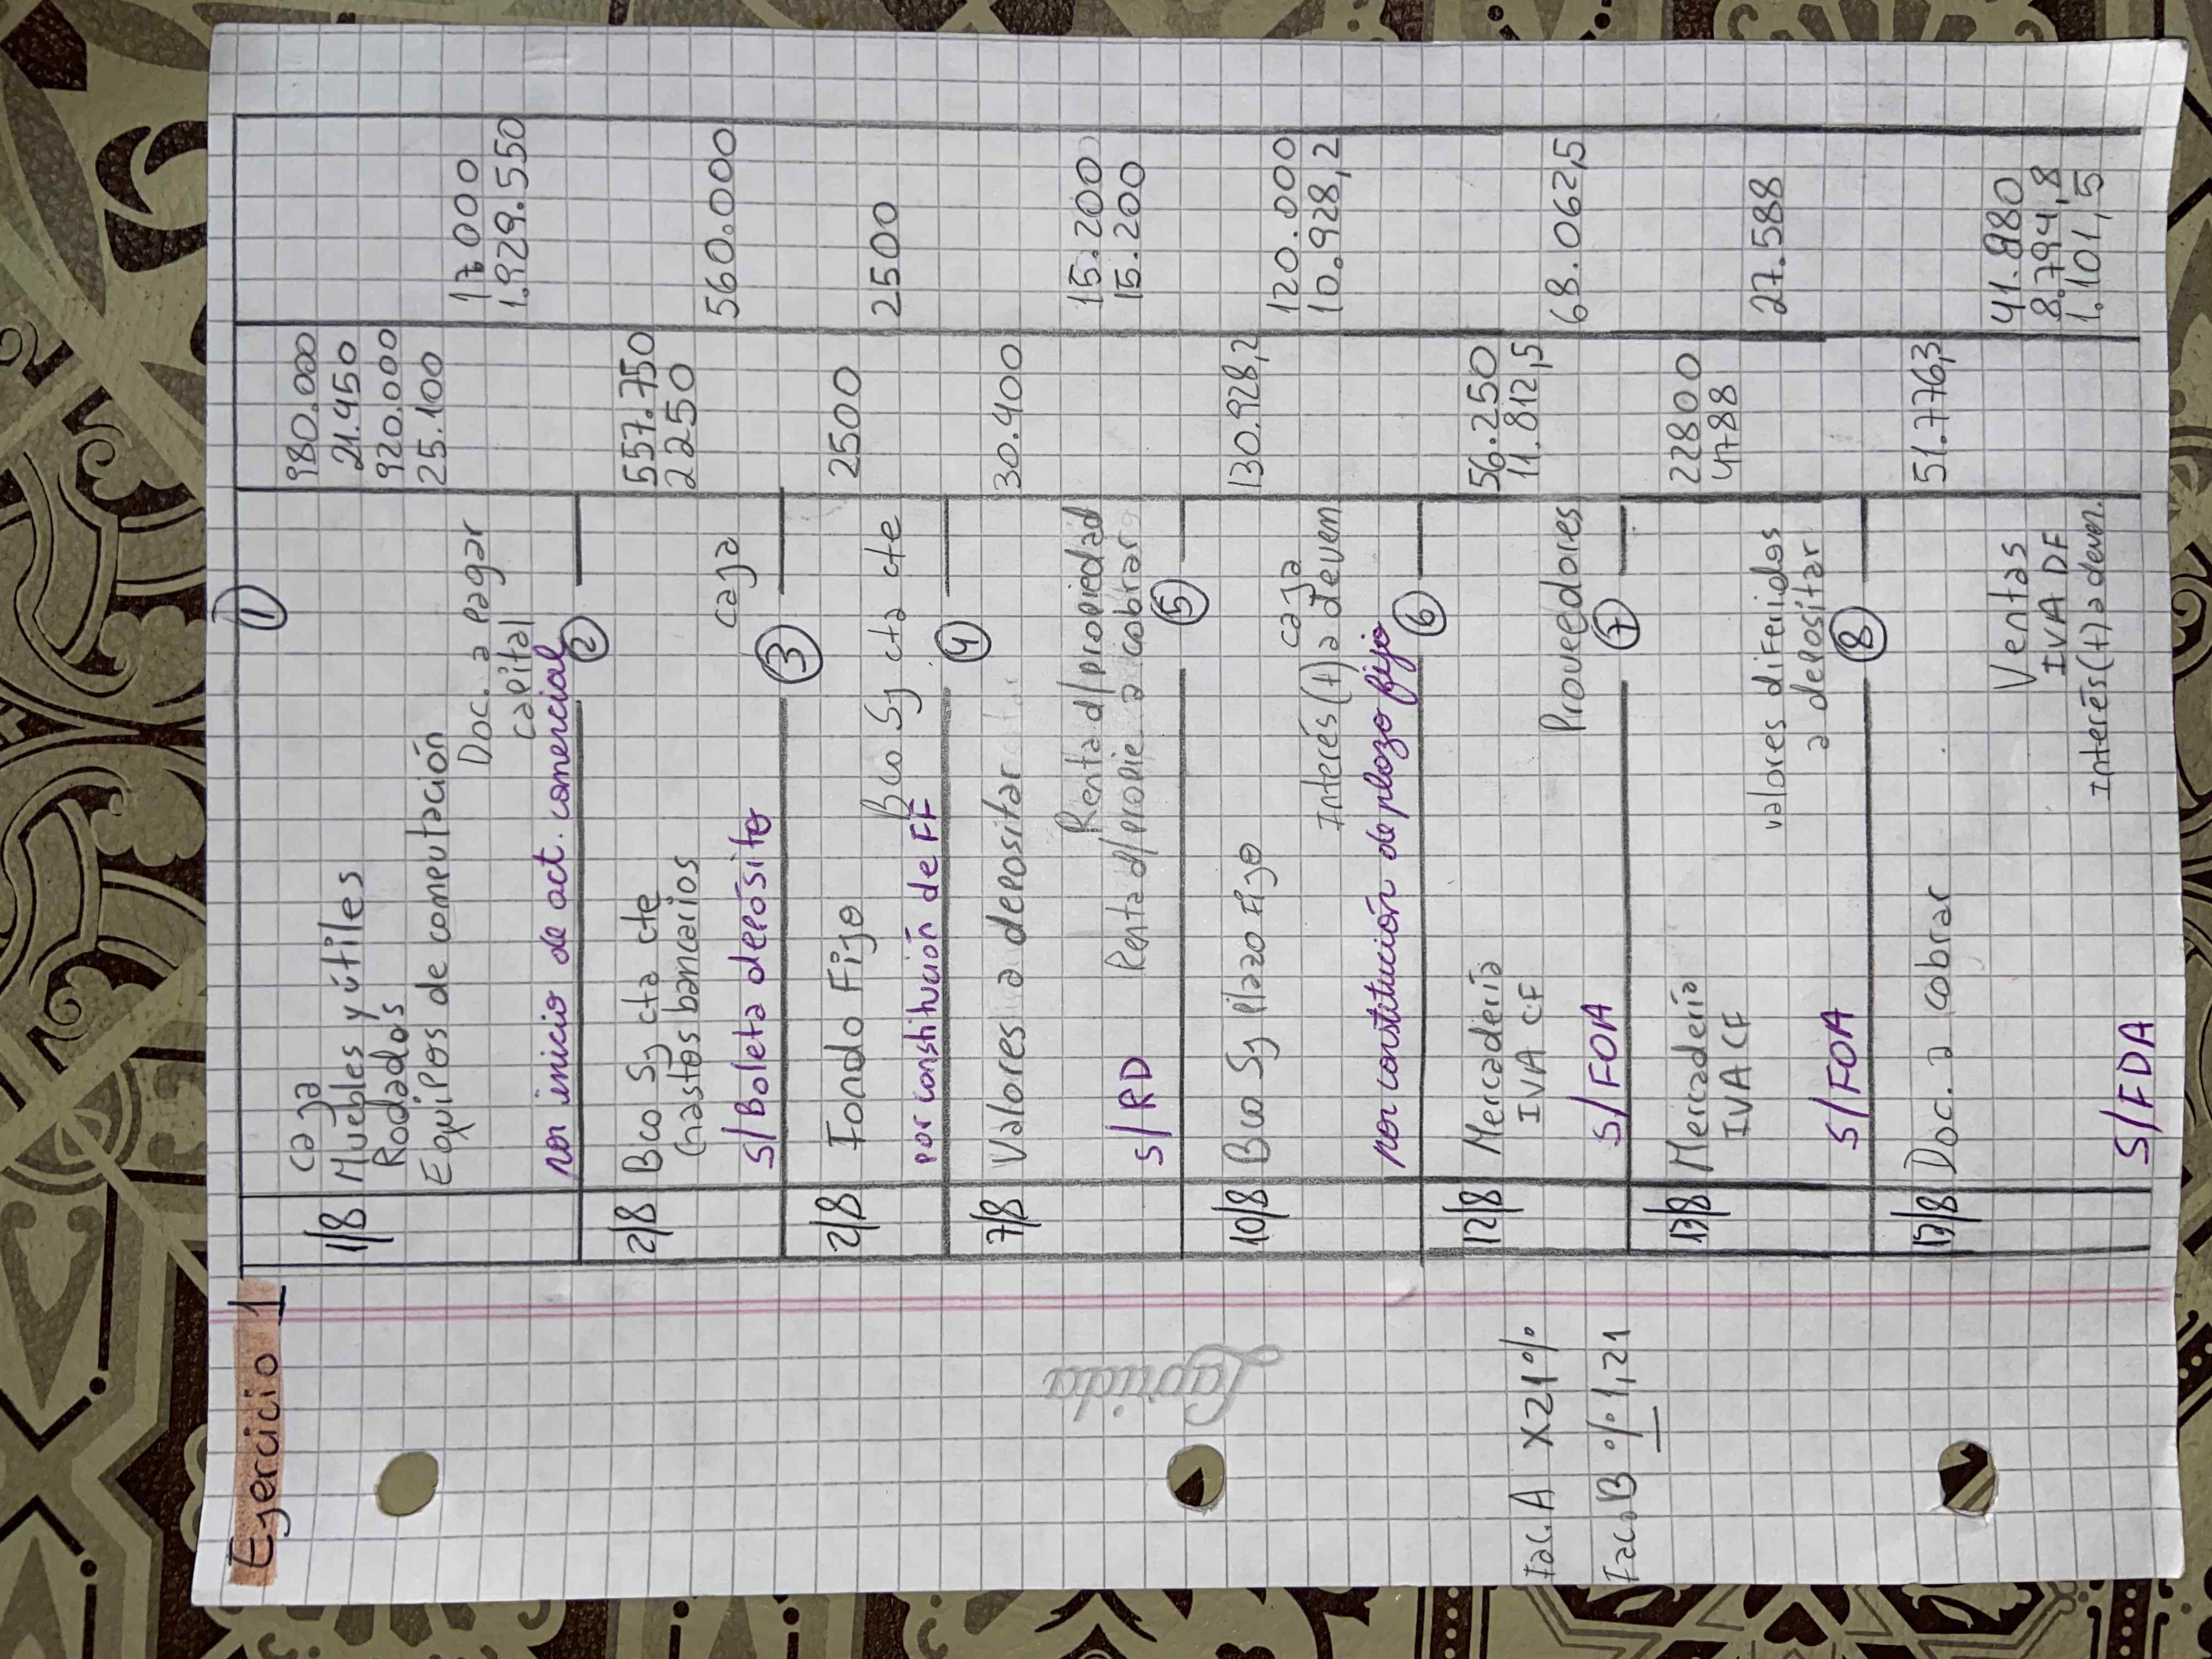 Ejercicio 1
①
1/8 Caja 980.000
Muebles y útiles 21.450
Rodados 920.000
Equipos de computación 25.100
Doc. a pagar 17.000
Capital 1.929.550
por inicio de act. comercial
②
2/8 Bco Sy cta cte 557.750
Gastos bancarios 2250
caja 560.000
S/Boleta depósito
③
2/8 Fondo Fijo 2500
Bco Sy cta cte 2500
por constitución de FF
④
7/8 Valores a depositar 30.400
Renta d/propiedad 15.200
Renta d/propie. a cobrar 15.200
S/RD
⑤
10/8 Bco Sy Plazo Fijo 130.928,2
caja 120.000
Interés (+) a deven 10.928,2
por constitución de plazo fijo
⑥
12/8 Mercadería 56.250
IVA CF 11.812,5
Proveedores 68.062,5
S/FOA
⑦
13/8 Mercadería 22800
IVA CF 4788
valores diferidos
a depositar 27.588
S/FOA
⑧
Doc. a cobrar 51.776,3
Ventas 41.880
IVA DF 8.794,8
Interés (+) a deven. 1.101,5
S/FDA
Fac. A x21%
Fac. B % 1,21
Laprida